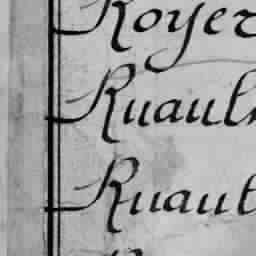 Royer
Ruaul
Ruaul